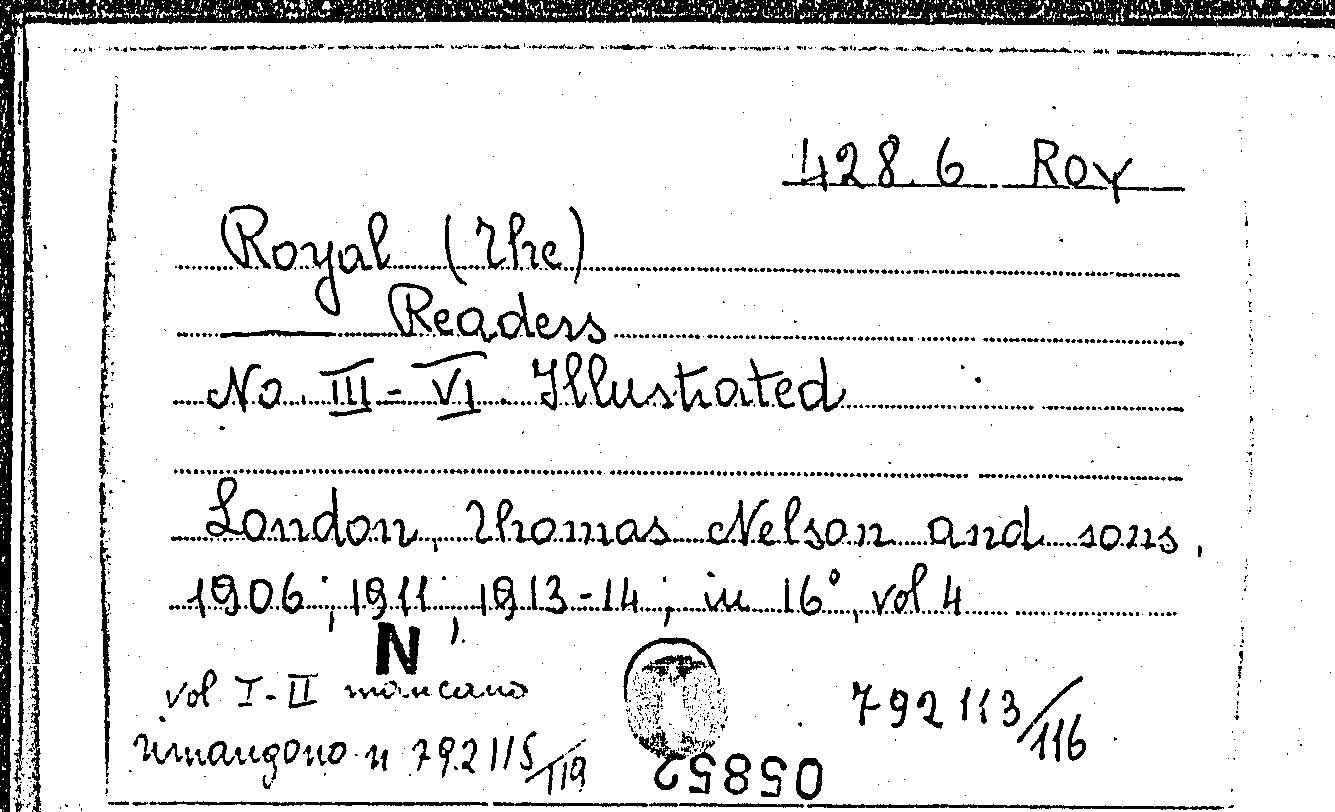 428.6 ROY
Royal (The)
Readers
No. III - VI. Illustrated
London, Thomas Nelson and sons,
1906; 1911; 1913-14; in 16°, vol 4
N
vol I-II mancano
792113/116
rimangono n 792115/119
05852